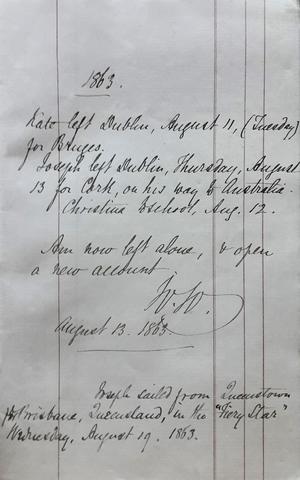 1863.
Kate left Dublin, August 11, (Tuesday)
for Bruges.
Joseph left Dublin, Thursday, August
13 for Cork, on his way to Australia.
Christina to school, Aug. 12.
Am now left alone, & open
a new account.
W. W.
August 13. 1863
Joseph sailed from Queenstown
for Brisbane, Queensland, in the "Fiery Star"
Wednesday, August 19. 1863.